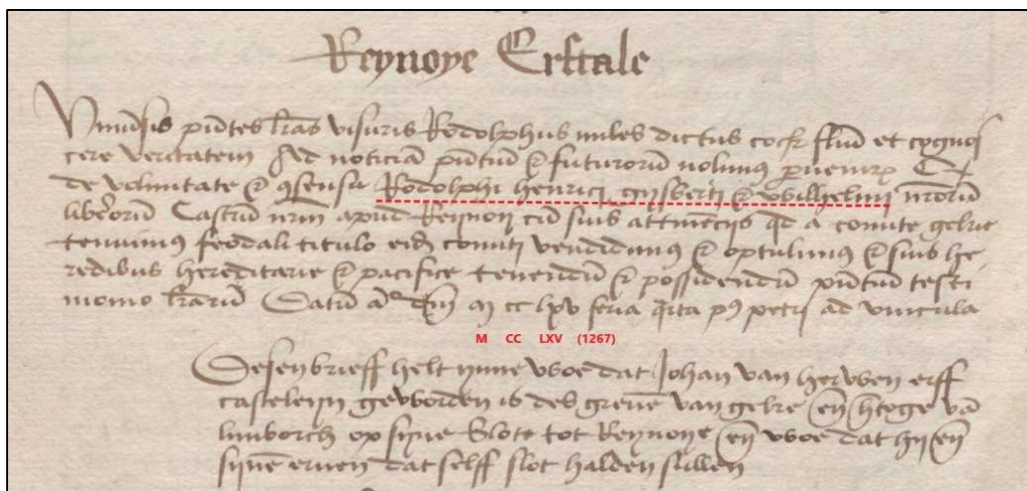 Reynoye Erftale
Vniuersis pntes lras visuris Rodolphus miles dictus cock salutem et cognos
cere veritatem Ad noticia pntium & futurorum volumus peruenire Q
de voluntate & consensu Rodolphi henrici gysberti & wilhelmi nrorum
liberorum Castrum nrm apud Reynoy cum suis attinencijs qd a comite gelrie
tenuimus feodali titulo eidem comiti vendidimus & optulimus & suis he
redibus hereditarie & pacifice tenendum & possidendum pntium testi
monio lrarum Datum a dni m cc lxv feria qrta ps petri ad vincula
M CC LXV (1267)
Desen brieff helt ynne woe dat Johan van herwen erff
casteleyn geworden is des greuen van gelre en htoge va
limborch op syne Slote tot Reynoye en woe dat hy en
syne eruen dat selff slot halden sullen